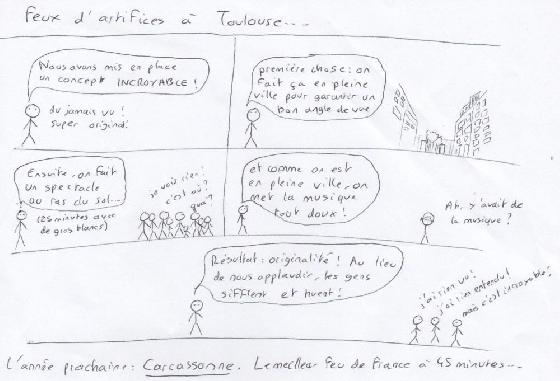 Feux d'artifices à Toulouse...
Nous avons mis en place
un concept INCROYABLE !
du jamais vu !
super original !
première chose : on
fait ça en pleine
ville pour garantir un
bon angle de vue
Ensuite, on fait
un spectacle
au ras du sol...
(25 minutes avec
de gros blancs)
je vois rien !
c'est où ?
quoi ?
et comme on est
en pleine ville, on
met la musique
tout doux !
Ah, y'avait de
la musique ?
Résultat : originalité ! Au lieu
de nous applaudir, les gens
sifflent et huent !
j'ai rien vu !
j'ai rien entendu !
mais c'est incroyable !
L'année prochaine : Carcassonne. Le meilleur feu de France à 45 minutes...